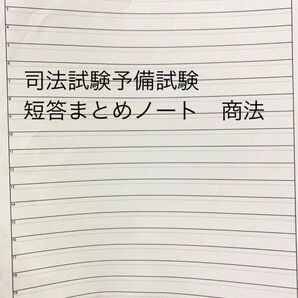 司法試験予備試験
短答まとめノート　商法